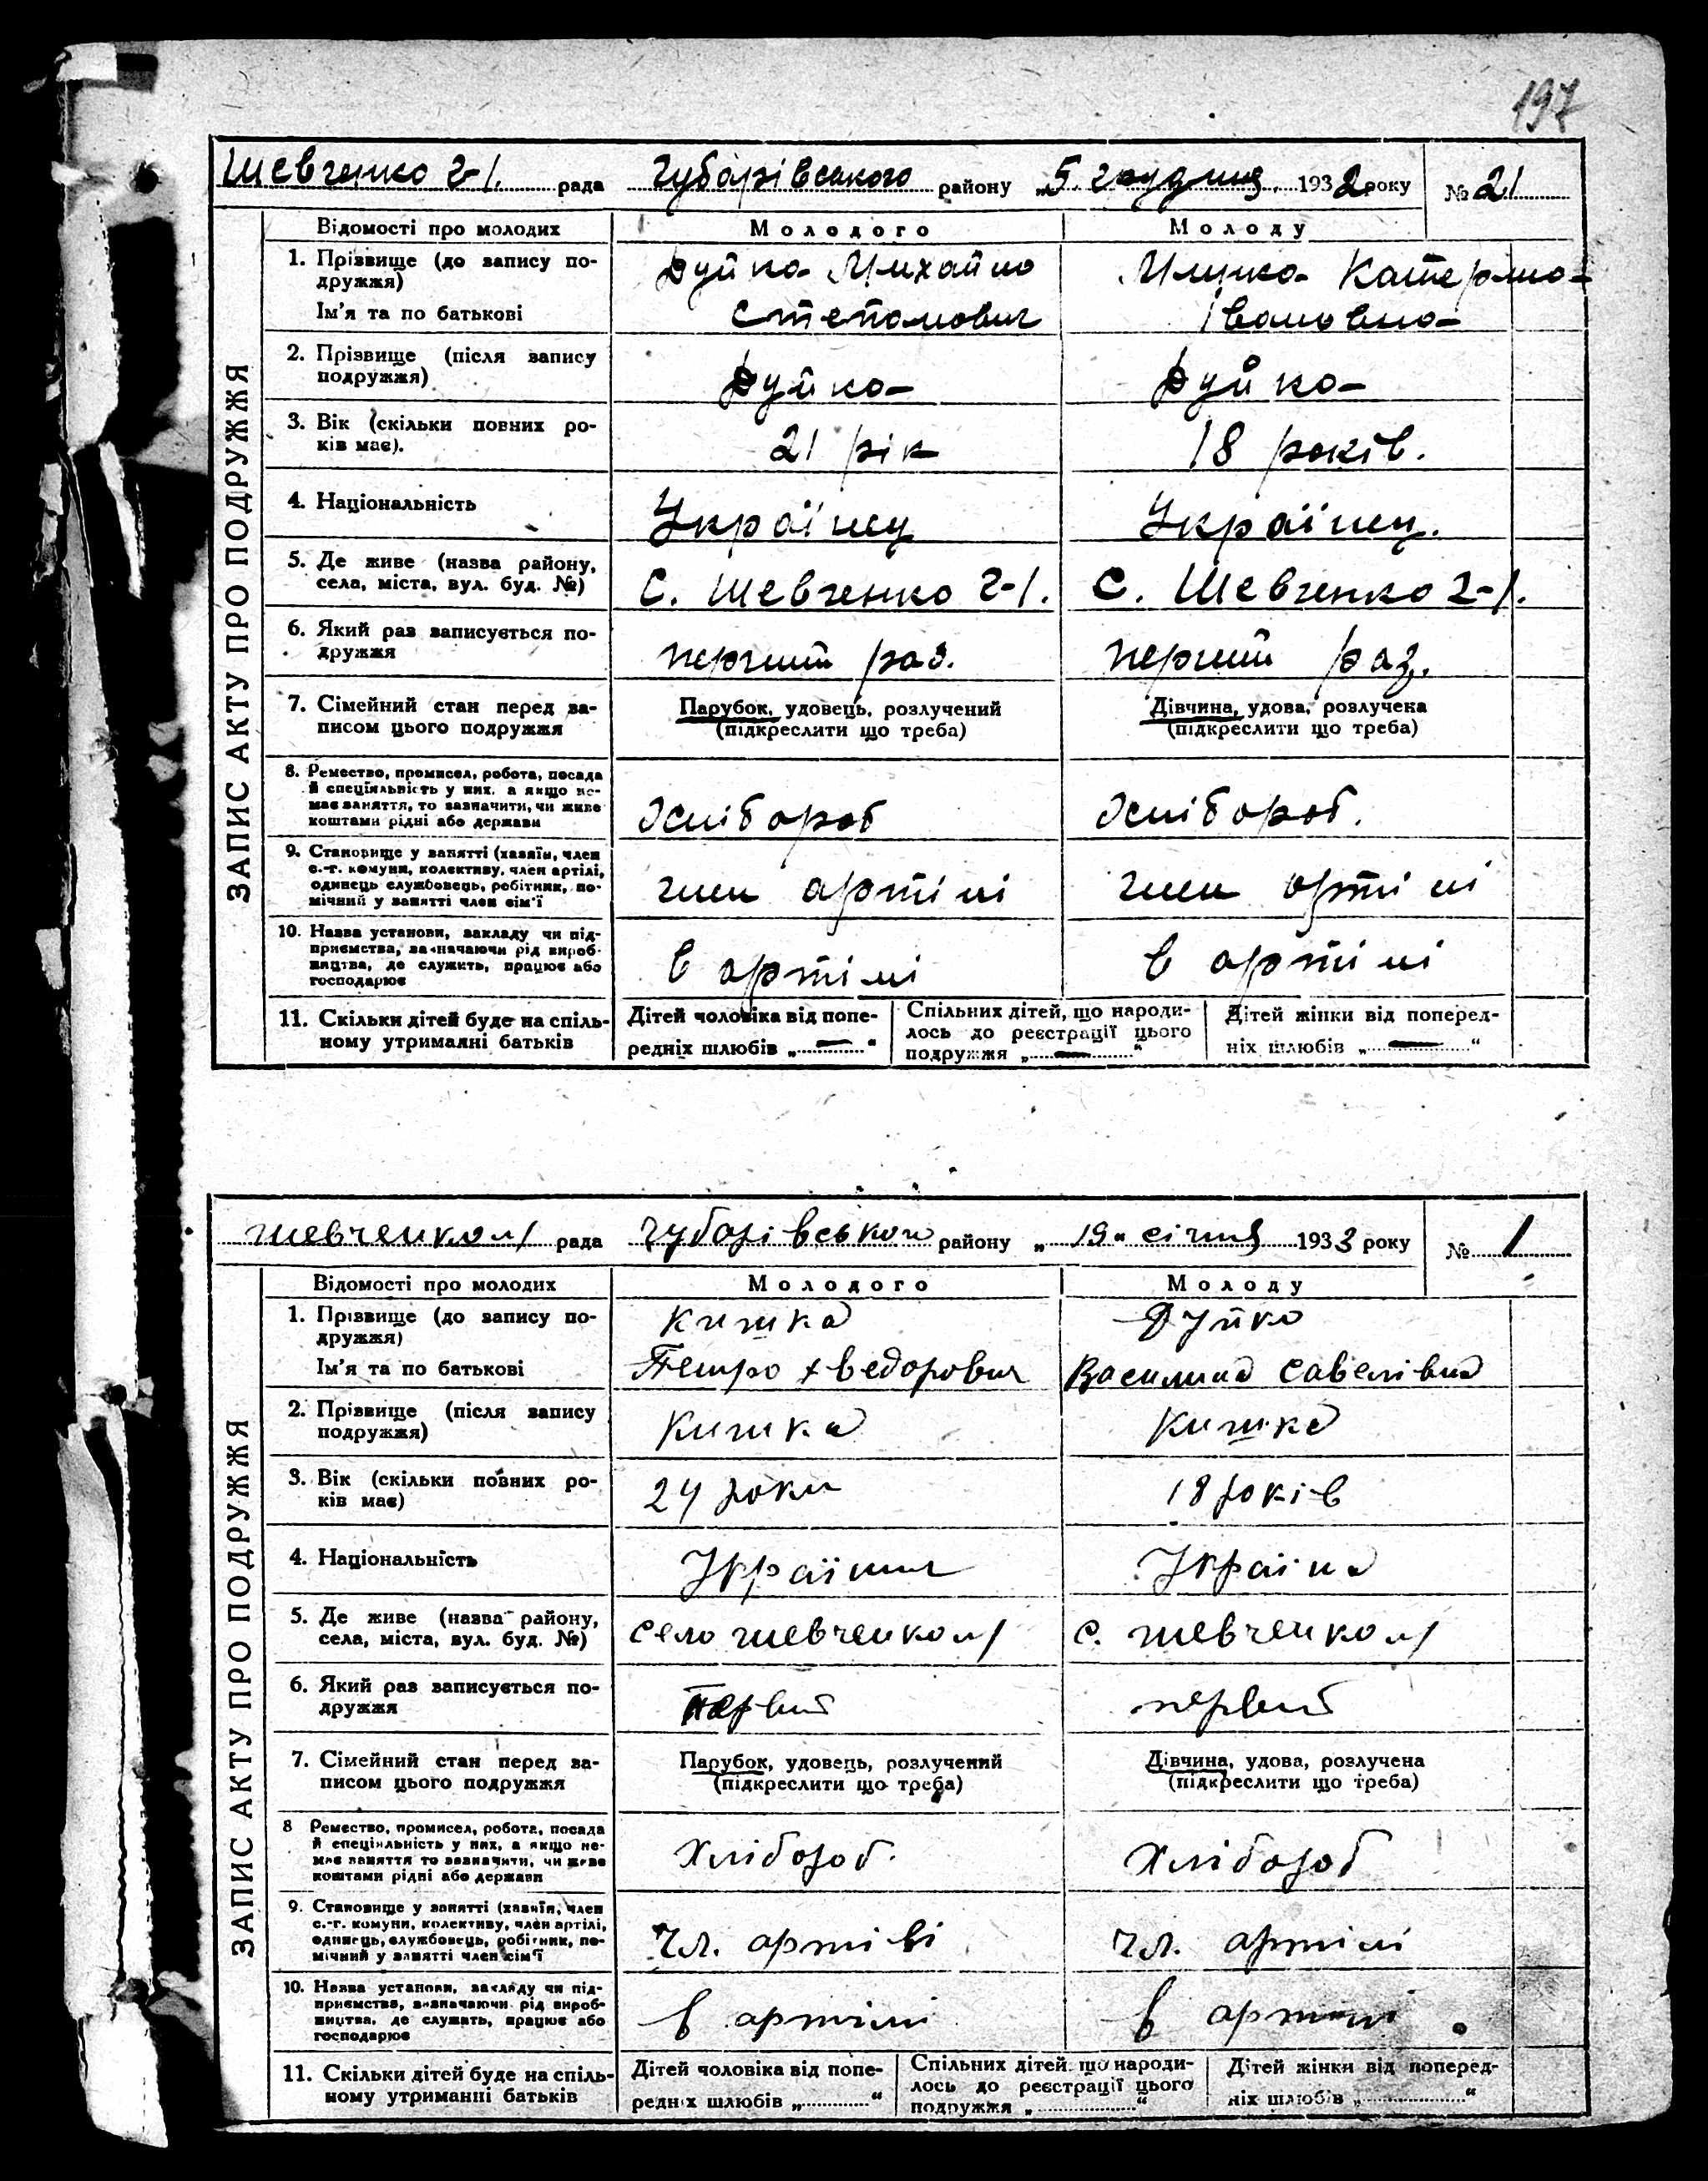 197
Шевченко 2-1. рада Чубарівського району „5 грудня 1932 року № 21
Відомості про молодих Молодого Молоду
1. Прізвище (до запису по-
дружжя)
Дуйка Михайло
Катерина
Ім'я та по батькові Степанович Івановна
2. Прізвище (після запису
подружжя) Дуйка Дуйка
3. Вік (скільки повних ро-
ків має). 21 рік 18 років.
4. Національність Українец Українец.
5. Де живе (назва району,
села, міста, вул. буд. №) С. Шевченко 2-1. С. Шевченко 2-1.
6. Який раз записується по-
дружжя перший раз. перший раз.
7. Сімейний стан перед за-
писом цього подружжя
Парубок, удовець, розлучений
(підкреслити що треба)
Дівчина, удова, розлучена
(підкреслити що треба)
8. Ремество, промисел, робота, посада
й спеціяльність у них, а якщо не-
має заняття, то зазначити, чи живе
коштами рідні або держави
Хлібороб Хлібороб.
9. Становище у занятті (хазяїн, член
с.-г. комуни, колективу, член артілі,
одинець службовець, робітник, по-
мічний у занятті член сім'ї
член артілі член артілі
10. Назва установи, закладу чи під-
приємства, зазначаючи рід вироб-
ництва, де служить, працює або
господарює
в артілі в артілі
11. Скільки дітей буде на спіль-
ному утриманні батьків
Дітей чоловіка від попе-
редніх шлюбів „—“
Спільних дітей, що народи-
лось до реєстрації цього
подружжя „—“
Дітей жінки від поперед-
ніх шлюбів „—“
ЗАПИС АКТУ ПРО ПОДРУЖЖЯ
рада Чубарівського району „19“ січня 1933 року № 1
Відомості про молодих Молодого Молоду
1. Прізвище (до запису по-
дружжя) Кишка Дуйка
Ім'я та по батькові Петро Хведорович Василина Савелівна
2. Прізвище (після запису
подружжя) Кишка Кишка
3. Вік (скільки повних ро-
ків має) 24 роки 18 років
4. Національність
5. Де живе (назва району,
села, міста, вул. буд. №) село с.
6. Який раз записується по-
дружжя первий первий
7. Сімейний стан перед за-
писом цього подружжя
Парубок, удовець, розлучений
(підкреслити що треба)
Дівчина, удова, розлучена
(підкреслити що треба)
8 Ремество, промисел, робота, посада
й спеціяльність у них, а якщо не-
має заняття то зазначити, чи живе
коштами рідні або держави
Хлібороб. Хлібороб
9. Становище у занятті (хазяїн, член
с.-г. комуни, колективу, член артілі,
одинець, службовець, робітник, по-
мічний у занятті член сім'ї
чл. артілі чл. артілі
10. Назва установи, закладу чи під-
приємства, зазначаючи рід вироб-
ництва, де служить, працює або
господарює
в артілі в артілі
11. Скільки дітей буде на спіль-
ному утриманні батьків
Дітей чоловіка від попе-
редніх шлюбів „ “
Спільних дітей, що народи-
лось до реєстрації цього
подружжя „ “
Дітей жінки від поперед-
ніх шлюбів „ “
ЗАПИС АКТУ ПРО ПОДРУЖЖЯ